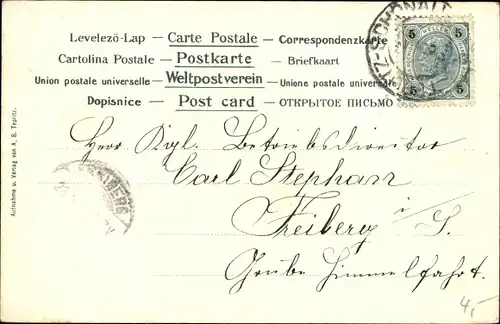 Levelező-Lap — Carte Postale — Correspondenzkarte
Cartolina Postale — Postkarte — Briefkaart
Union postale universelle — Weltpostverein — Unione postale universale
Dopisnice — Post card — ОТКРЫТОЕ ПИСЬМО
TZ-SCHÖNAU
5 HELLER 5
5 5
Aufnahme u. Verlag von A. S. Teplitz.
Herr Kgl. Betriebsdirector
Carl Stephan
FREIBERG
Freiberg i/S.
Grube Himmelfahrt.
4,-